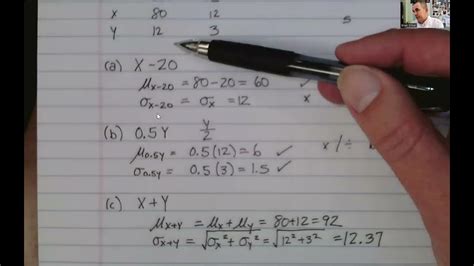 X 80 12
Y 12 3
5
(a) X-20
μx-20 = 80-20 = 60 ✓
σx-20 = σx = 12 x
(b) 0.5Y Y/2
μ0.5Y = 0.5(12) = 6 ✓ x/÷
σ0.5Y = 0.5(3) = 1.5 ✓
(c) X+Y
μx+y = μx + μy = 80+12 = 92
σx+y = √σx² + σy² = √12² + 3² = 12.37